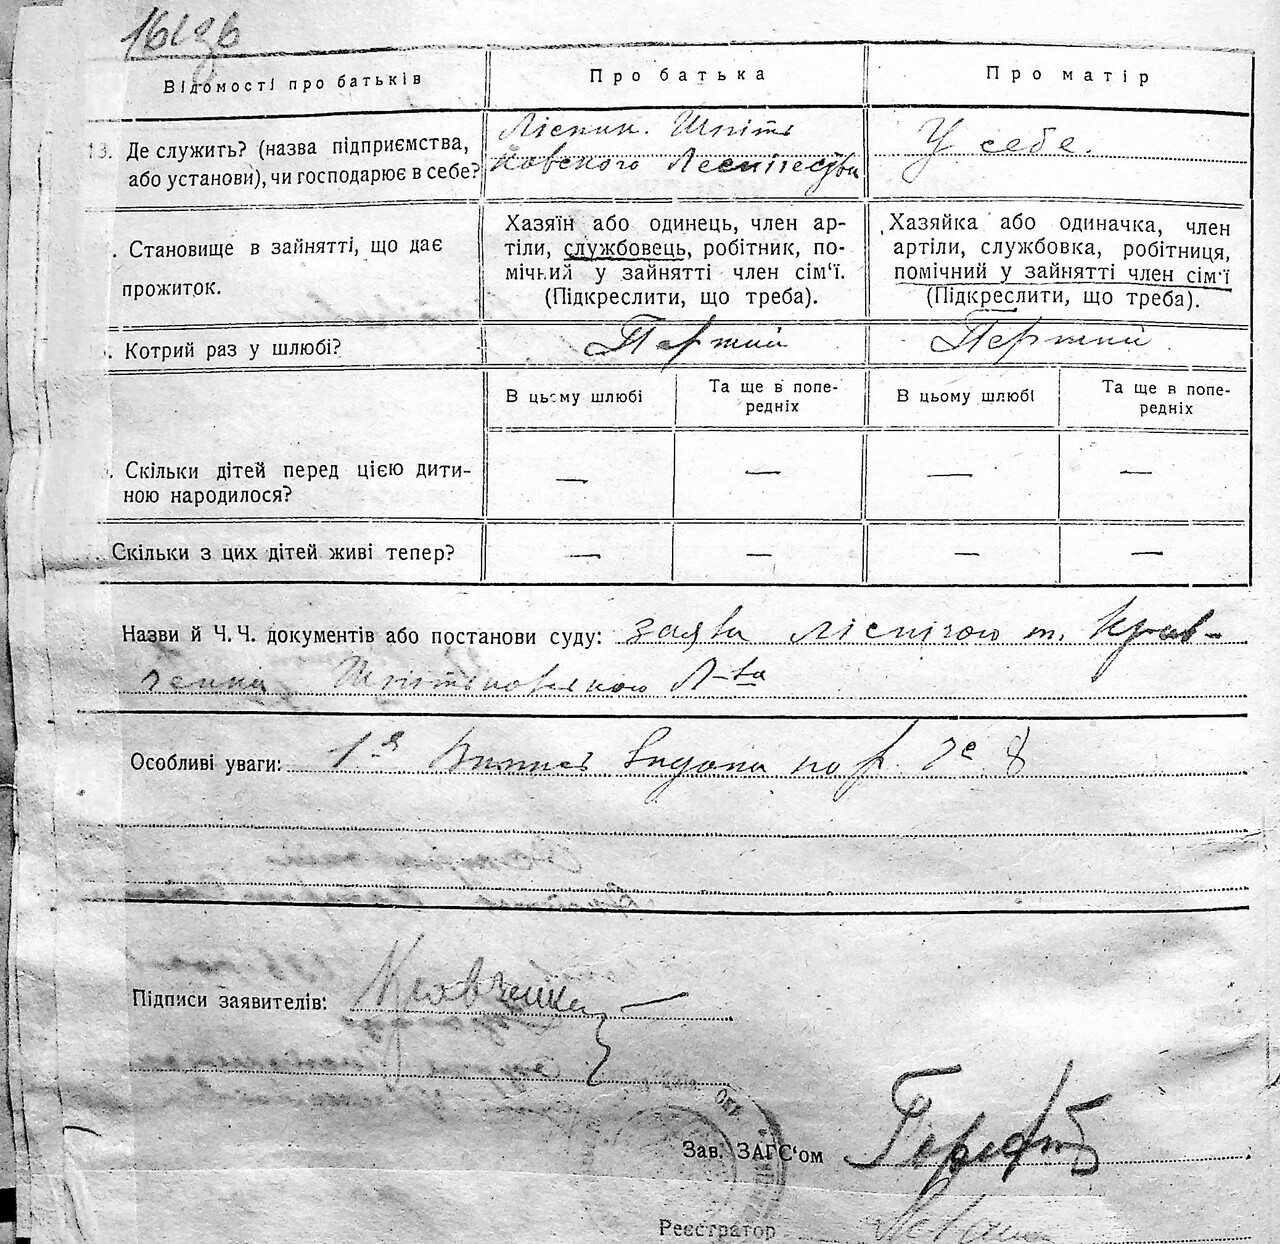 Відомості про батьків
Про батька
Про матір
13. Де служить? (назва підприємства,
або установи), чи господарює в себе?
Ліспик. Шпіть
ковского Леспіества
У себе.
. Становище в зайнятті, що дає
прожиток.
Хазяїн або одинець, член ар-
тілі, службовець, робітник, по-
мічний у зайнятті член сім'ї.
(Підкреслити, що треба).
Хазяйка або одиначка, член
артіли, службовка, робітниця,
помічний у зайнятті член сім'ї
(Підкреслити, що треба).
. Котрий раз у шлюбі?
Перший
Перший
В цьому шлюбі
Та ще в попе-
редніх
В цьому шлюбі
Та ще в попе-
редніх
. Скільки дітей перед цією дити-
ною народилося?
—
—
—
—
Скільки з цих дітей живі тепер?
—
—
—
—
Назви й Ч.Ч. документів або постанови суду: заява лісничого т. Крав-
ченка Л-ва
Особливі уваги: 1я видана по 8
Підписи заявителів: Кравченко
Зав. ЗАГС'ом
Реєстратор